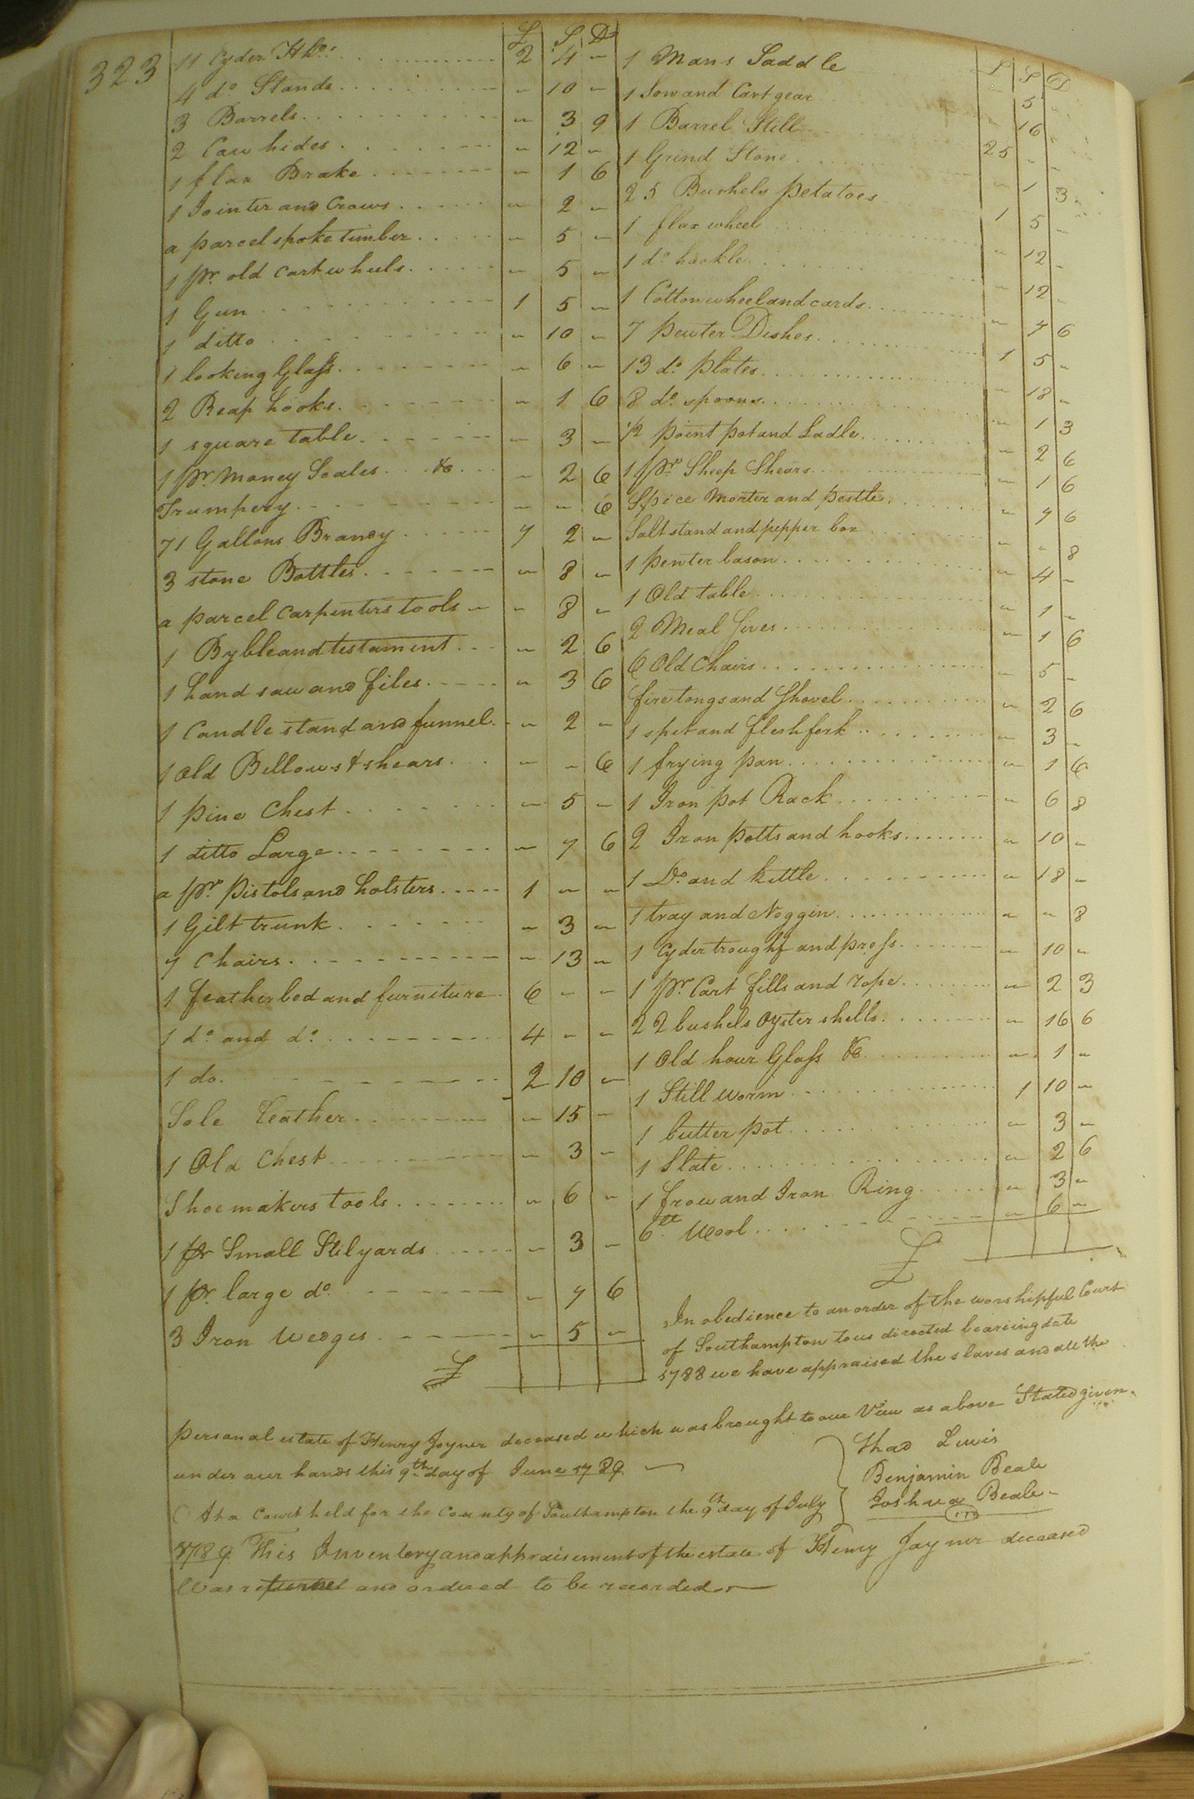 323
£ S D
11 Cyder Hhds 2 4 -
4 do Stands - 10 -
3 Barrels - 3 9
2 Cow hides - 12 -
1 flax Brake - 1 6
1 Jointer and Crows - 2 -
a parcel spoke timber - 5 -
1 pr. old Cart wheels - 5 -
1 Gun 1 5 -
1 ditto - 10 -
1 looking Glass - 6 -
2 Reap hooks - 1 6
1 square table - 3 -
1 pr. money Scales &c - 2 6
Trumpery - - 6
71 Gallons Brandy 7 2 -
3 stone Bottles - 8 -
a parcel Carpenters tools - 8 -
1 Byble and testament - 2 6
1 hand saw and files - 3 6
1 Candle stand and funnel - 2 -
1 old Bellows & shears - - 6
1 pine Chest - 5 -
1 ditto Large - 7 6
a pr. Pistols and holsters 1 - -
1 Gilt trunk - 3 -
7 Chairs - 13 -
1 featherbed and furniture 6 - -
1 do. and do. 4 - -
1 do. 2 10 -
Sole Leather - 15 -
1 Old Chest - 3 -
Shoemakers tools - 6 -
1 pr Small Stilyards - 3 -
1 pr. large do - 7 6
3 Iron Wedges - 5 -
£
£ S D
1 Mans Saddle - 5 -
1 Sow and Cart gear - 16 -
1 Barrel Still 25 - -
1 Grind Stone - 1 3
25 Bushels petatoes 1 5 -
1 flax wheel - 12 -
1 do. hackle - 12 -
1 Cotton wheel and cards - 7 6
7 pewter Dishes 1 5 -
13 do. plates - 18 -
8 do. spoons - 1 3
1/2 point pot and Ladle - 2 6
1 pr. Sheep Shears - 1 6
Spice Morter and pestle - 7 6
Salt stand and pepper box - - 8
1 pewter bason - 4 -
1 Old table - 1 -
2 Meal sives - 1 6
6 Old Chairs - 5 -
fire tongs and Shovel - 2 6
1 spit and flesh fork - 3 -
1 frying pan - 1 6
1 Iron pot Rack - 6 8
2 Iron potts and hooks - 10 -
1 Do. and kettle - 18 -
1 tray and Noggin - - 8
1 Cyder trough and press - 10 -
1 pr. Cart fills and rope - 2 3
22 bushels oyster shells - 16 6
1 Old hour Glass &c - 1 -
1 Still worm 1 10 -
1 butter pot - 3 -
1 Slate - 2 6
1 frow and Iron Ring - 3 -
6 lb Wool - 6 -
£
In obedience to an order of the worshipful Court
of Southampton to us directed bearing date
1788 we have appraised the slaves and all the
personal estate of Henry Joyner deceased which was brought to our View as above Stated given
under our hands this 9th day of June 1789
Thad Lewis
Benjamin Beale
Joshua Beale
At a Court held for the County of Southampton the 9th day of July
1789 This Inventory and appraisement of the estate of Henry Joyner deceased
Was returned and ordered to be recorded